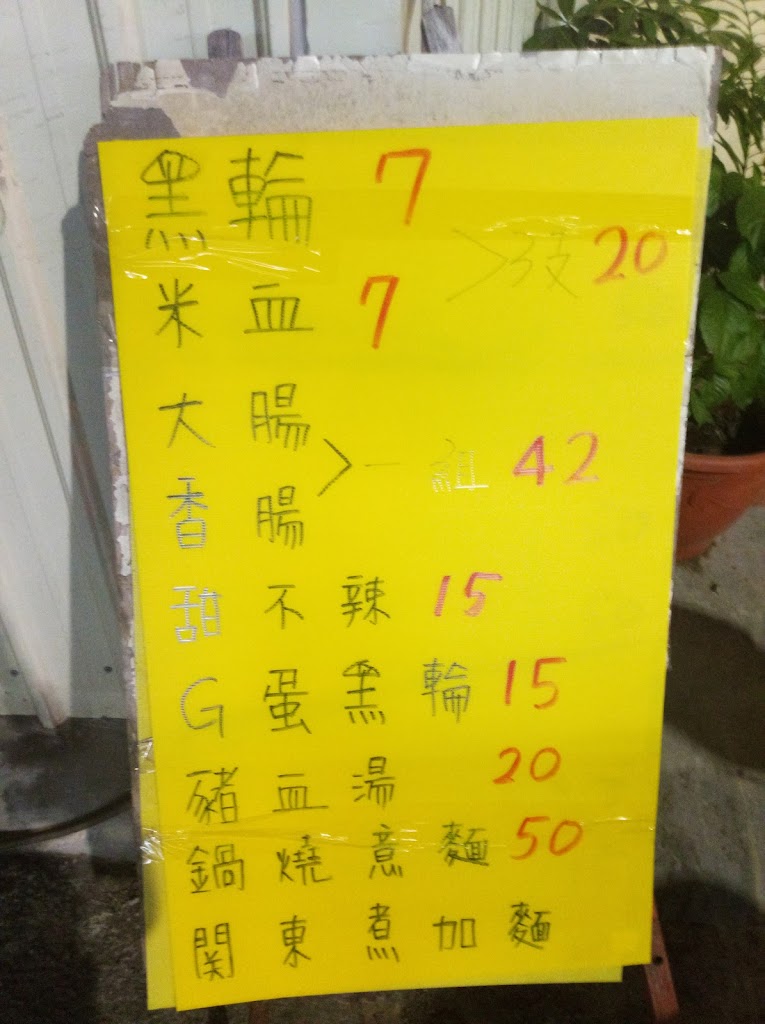 黑輪 7
米血 7
>3支 20
大腸
香腸
>一組 42
甜不辣 15
G蛋黑輪 15
豬血湯 20
鍋燒意麵 50
関東煮加麵